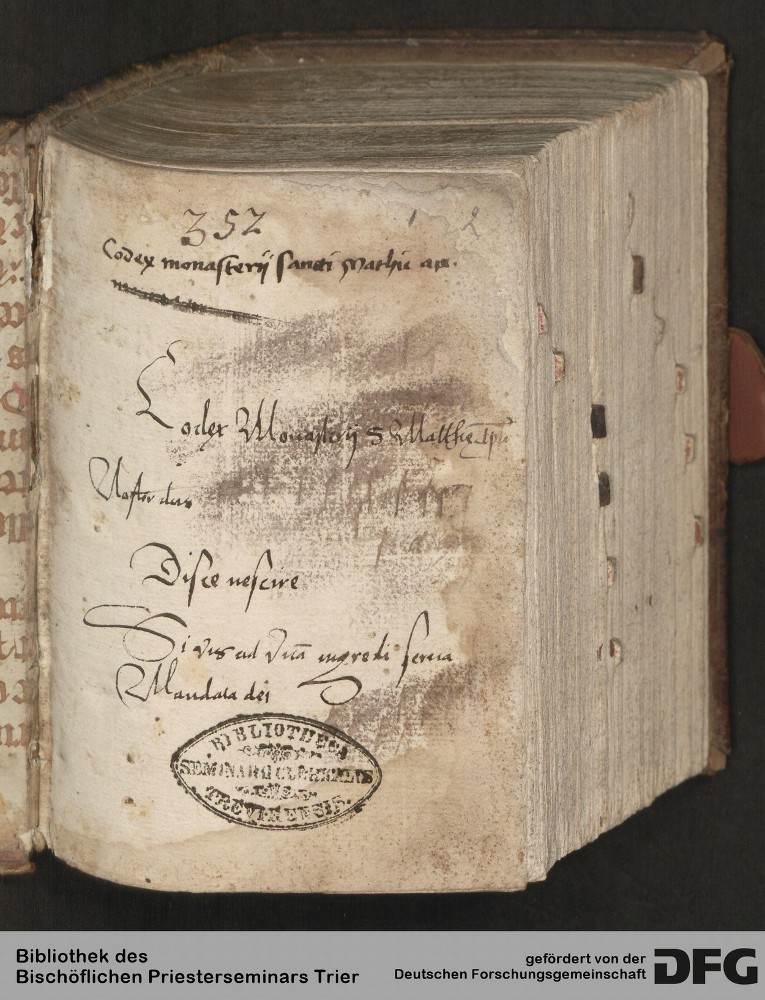 352
1 2
Codex monasterij sancti Mathie ap.
Codex Monasterij S Matthie
Noster
Disce nescire
Si vis ad vitā ingredi serua
Mandata dei
BIBLIOTHECA
SEMINARII CLERICALIS
TREVIRENSIS.
Bibliothek des
Bischöflichen Priesterseminars Trier
gefördert von der
Deutschen Forschungsgemeinschaft
DFG